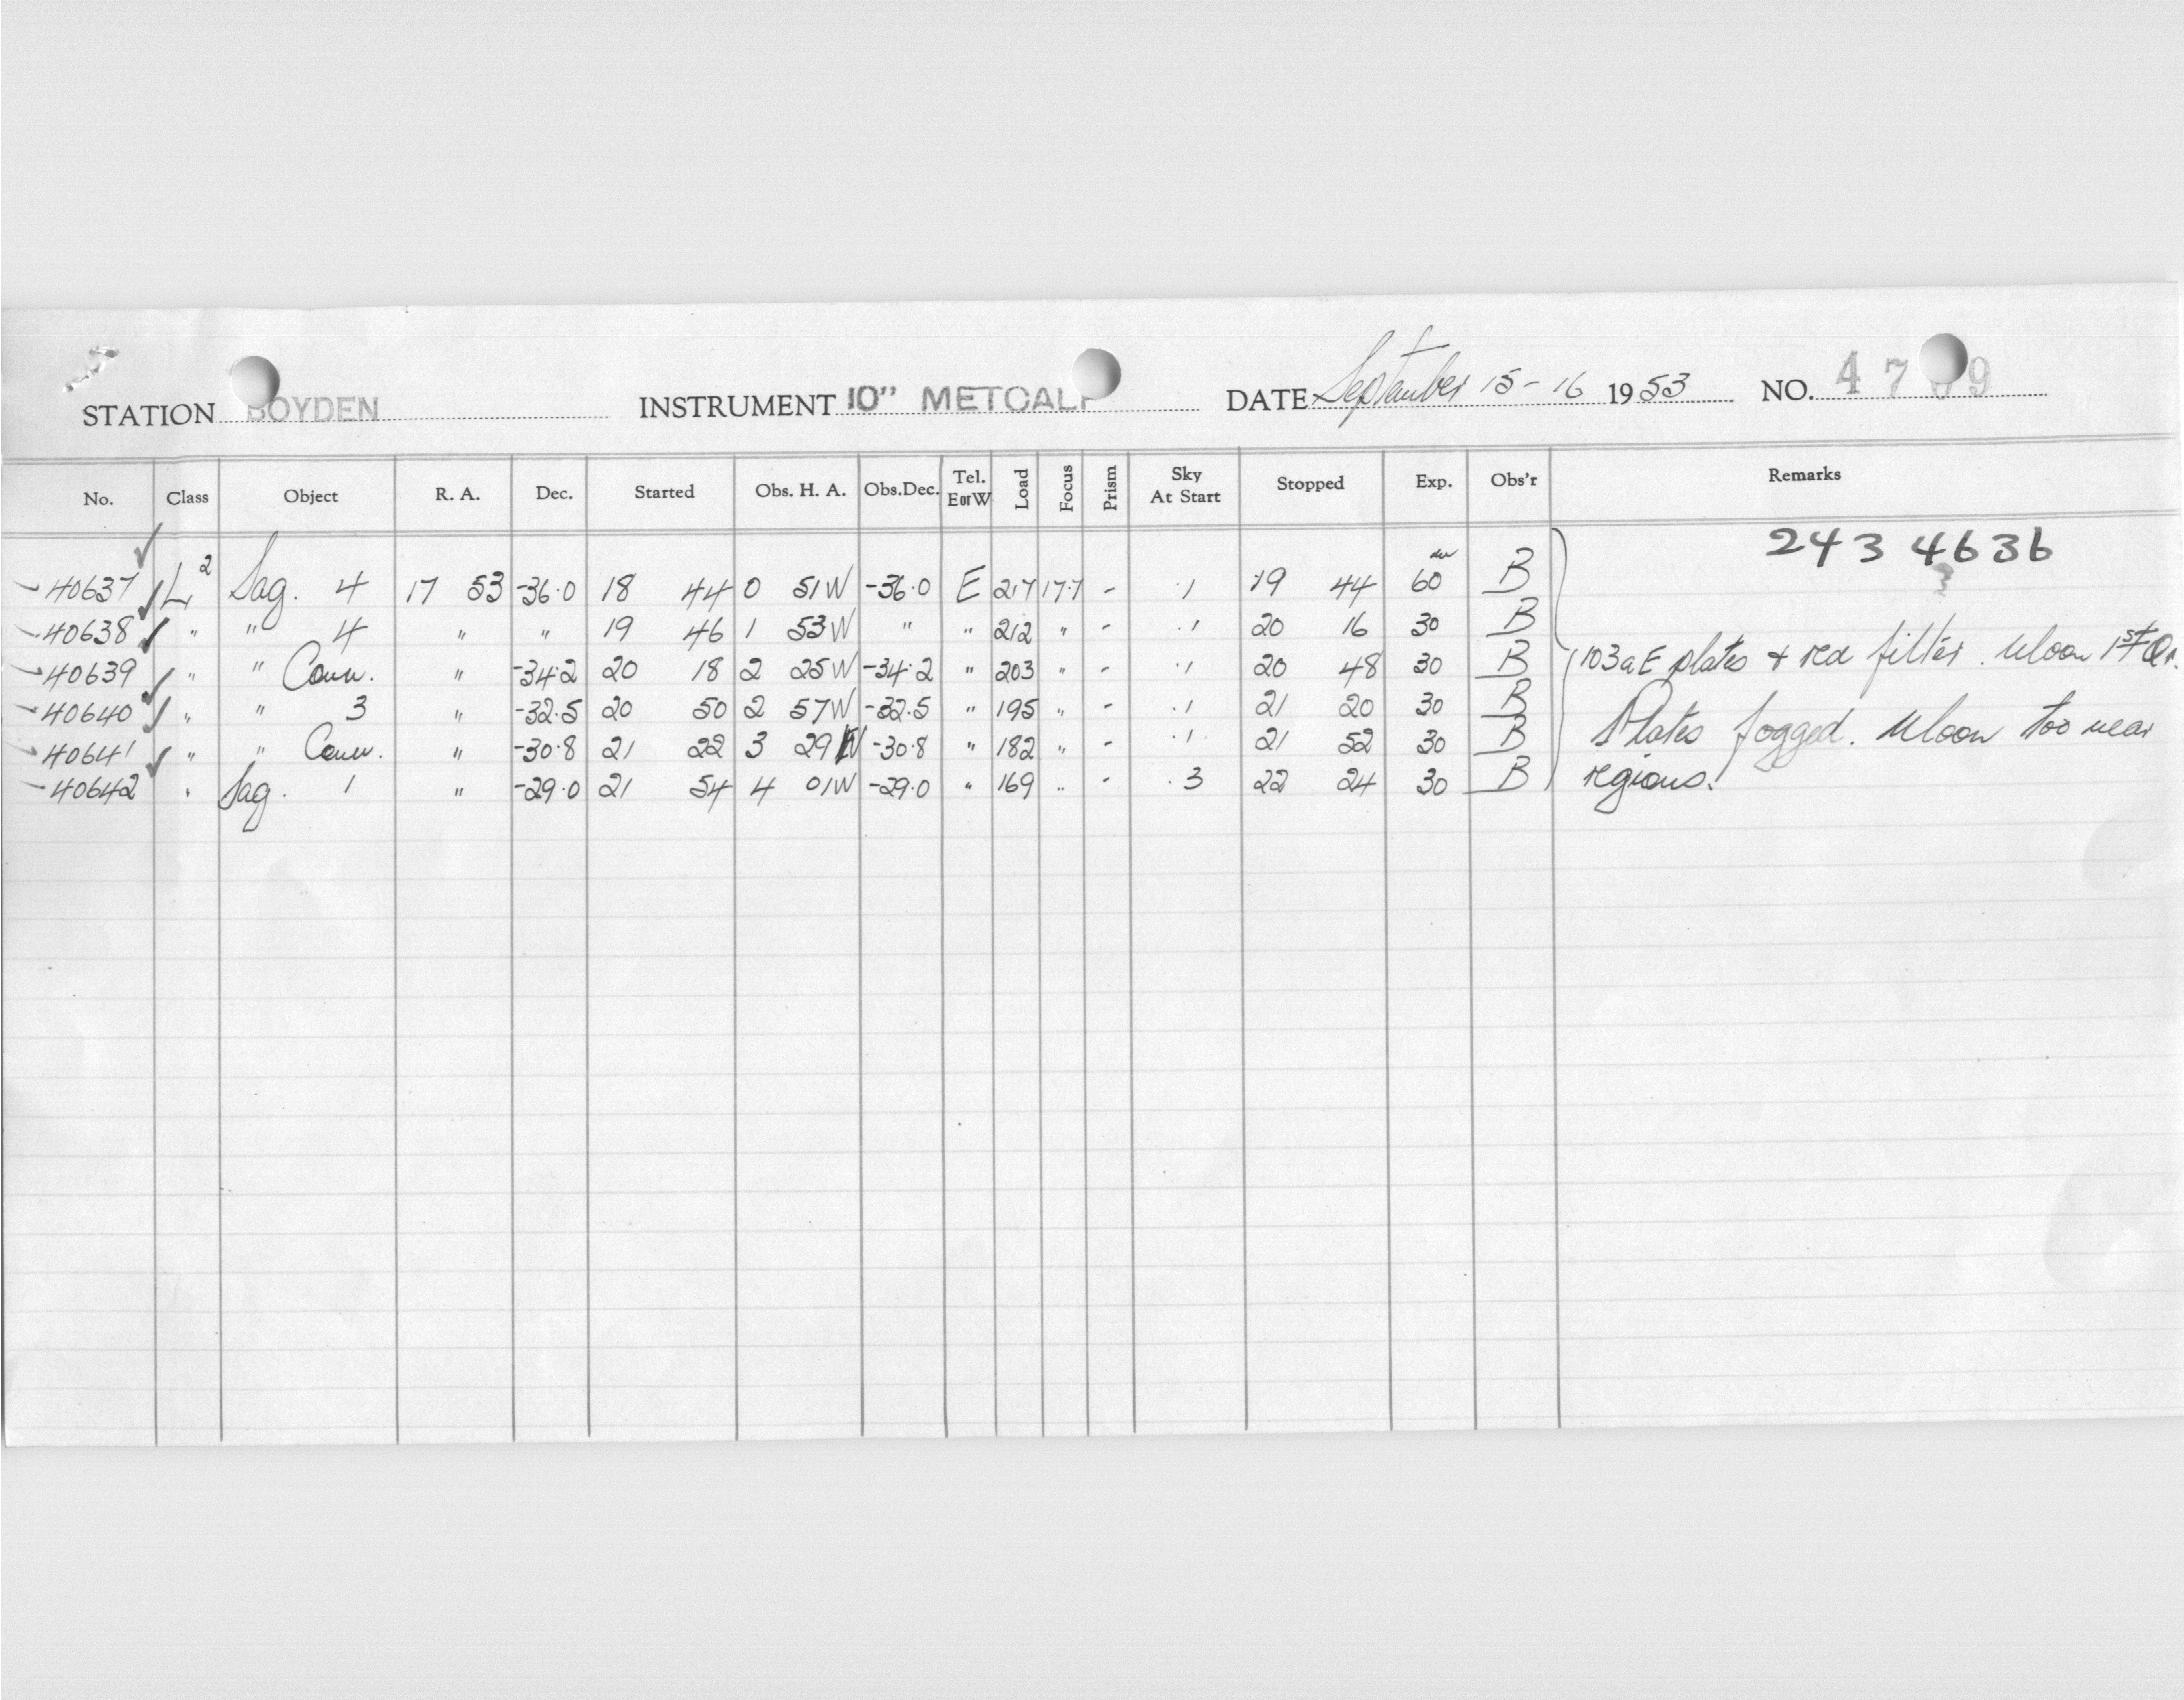 STATION BOYDEN INSTRUMENT 10" METCALF DATE September 15-16 1953 NO. 4709
No. Class Object R. A. Dec. Started Obs. H. A. Obs.Dec. Tel. E or W Load Focus Prism Sky At Start Stopped Exp. Obs'r Remarks
243 4636
40637 L2 Sag. 4 17 53 -36.0 18 44 0 51W -36.0 E 217 17.7 - .1 19 44 60 B
40638 " " 4 " " 19 46 1 53W " " 212 " - .1 20 16 30 B
40639 " " Conn. " -34.2 20 18 2 25W -34.2 " 203 " - .1 20 48 30 B 103aE plates + red filter. Moon 1st Qr.
40640 " " 3 " -32.5 20 50 2 57W -32.5 " 195 " - .1 21 20 30 B Plates fogged. Moon too near
40641 " " Conn. " -30.8 21 22 3 29W -30.8 " 182 " - .1 21 52 30 B
40642 " Sag. 1 " -29.0 21 54 4 01W -29.0 " 169 " - .3 22 24 30 B regions.